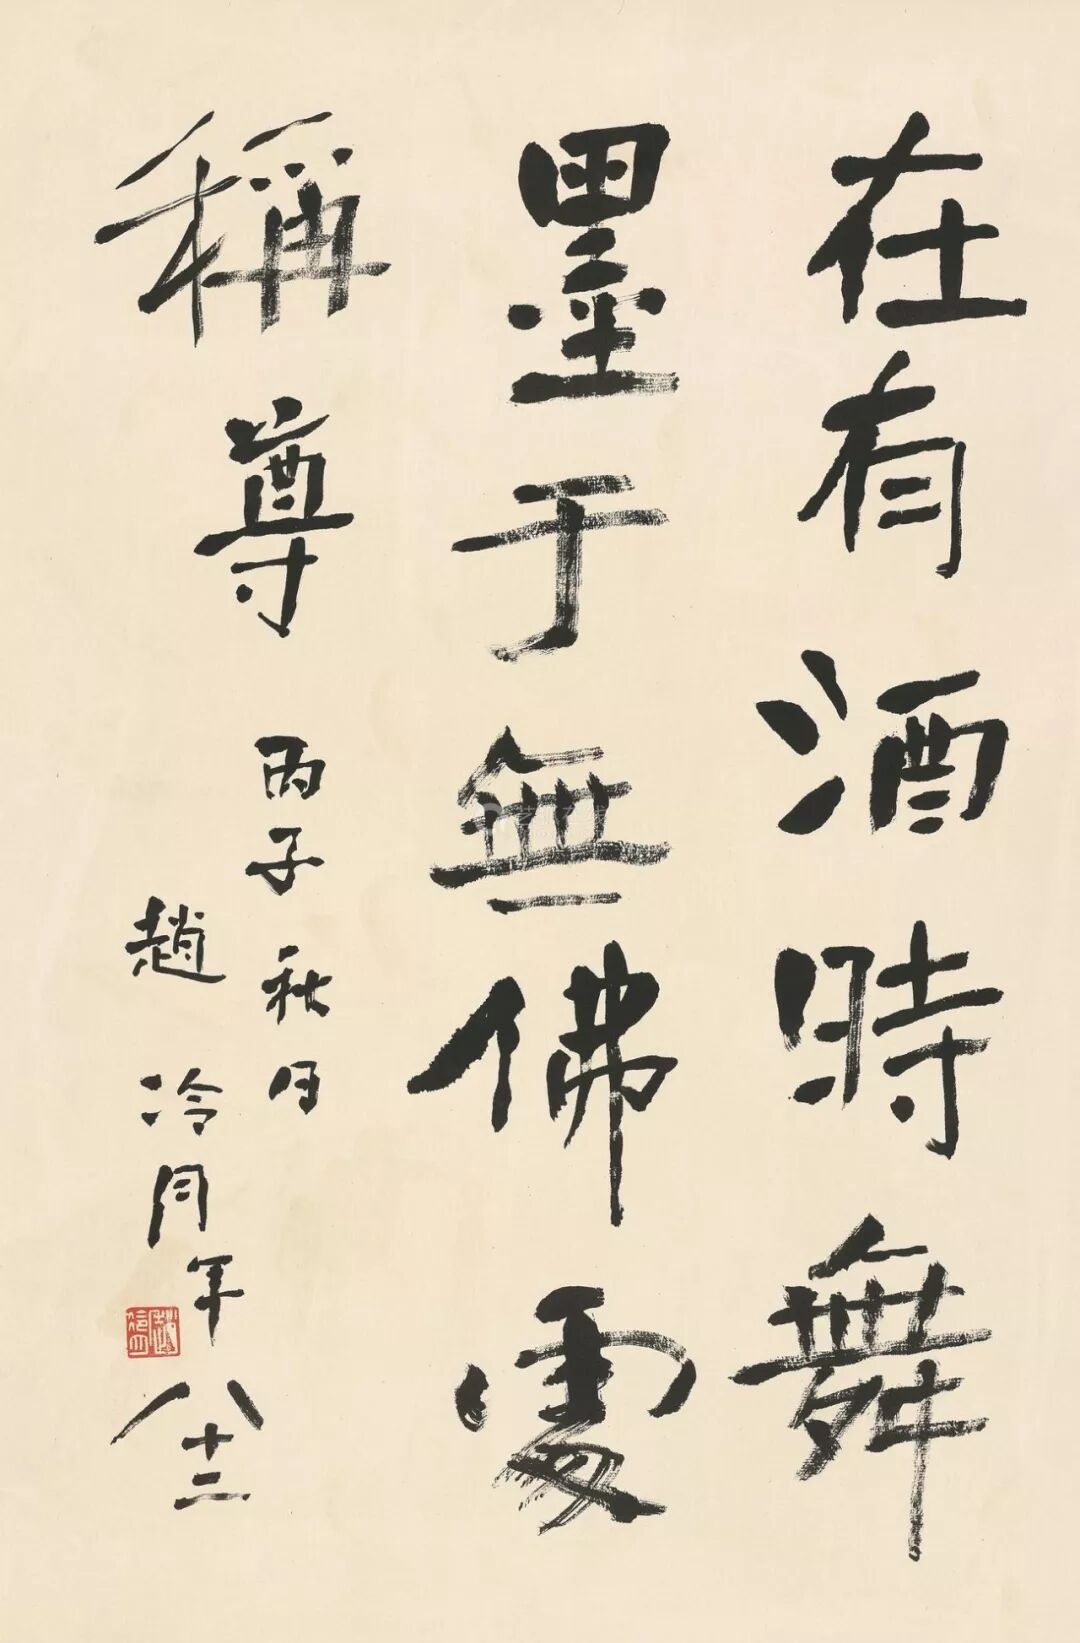 在有酒時舞
墨于無佛處
稱尊
丙子秋月
趙冷月年八十二